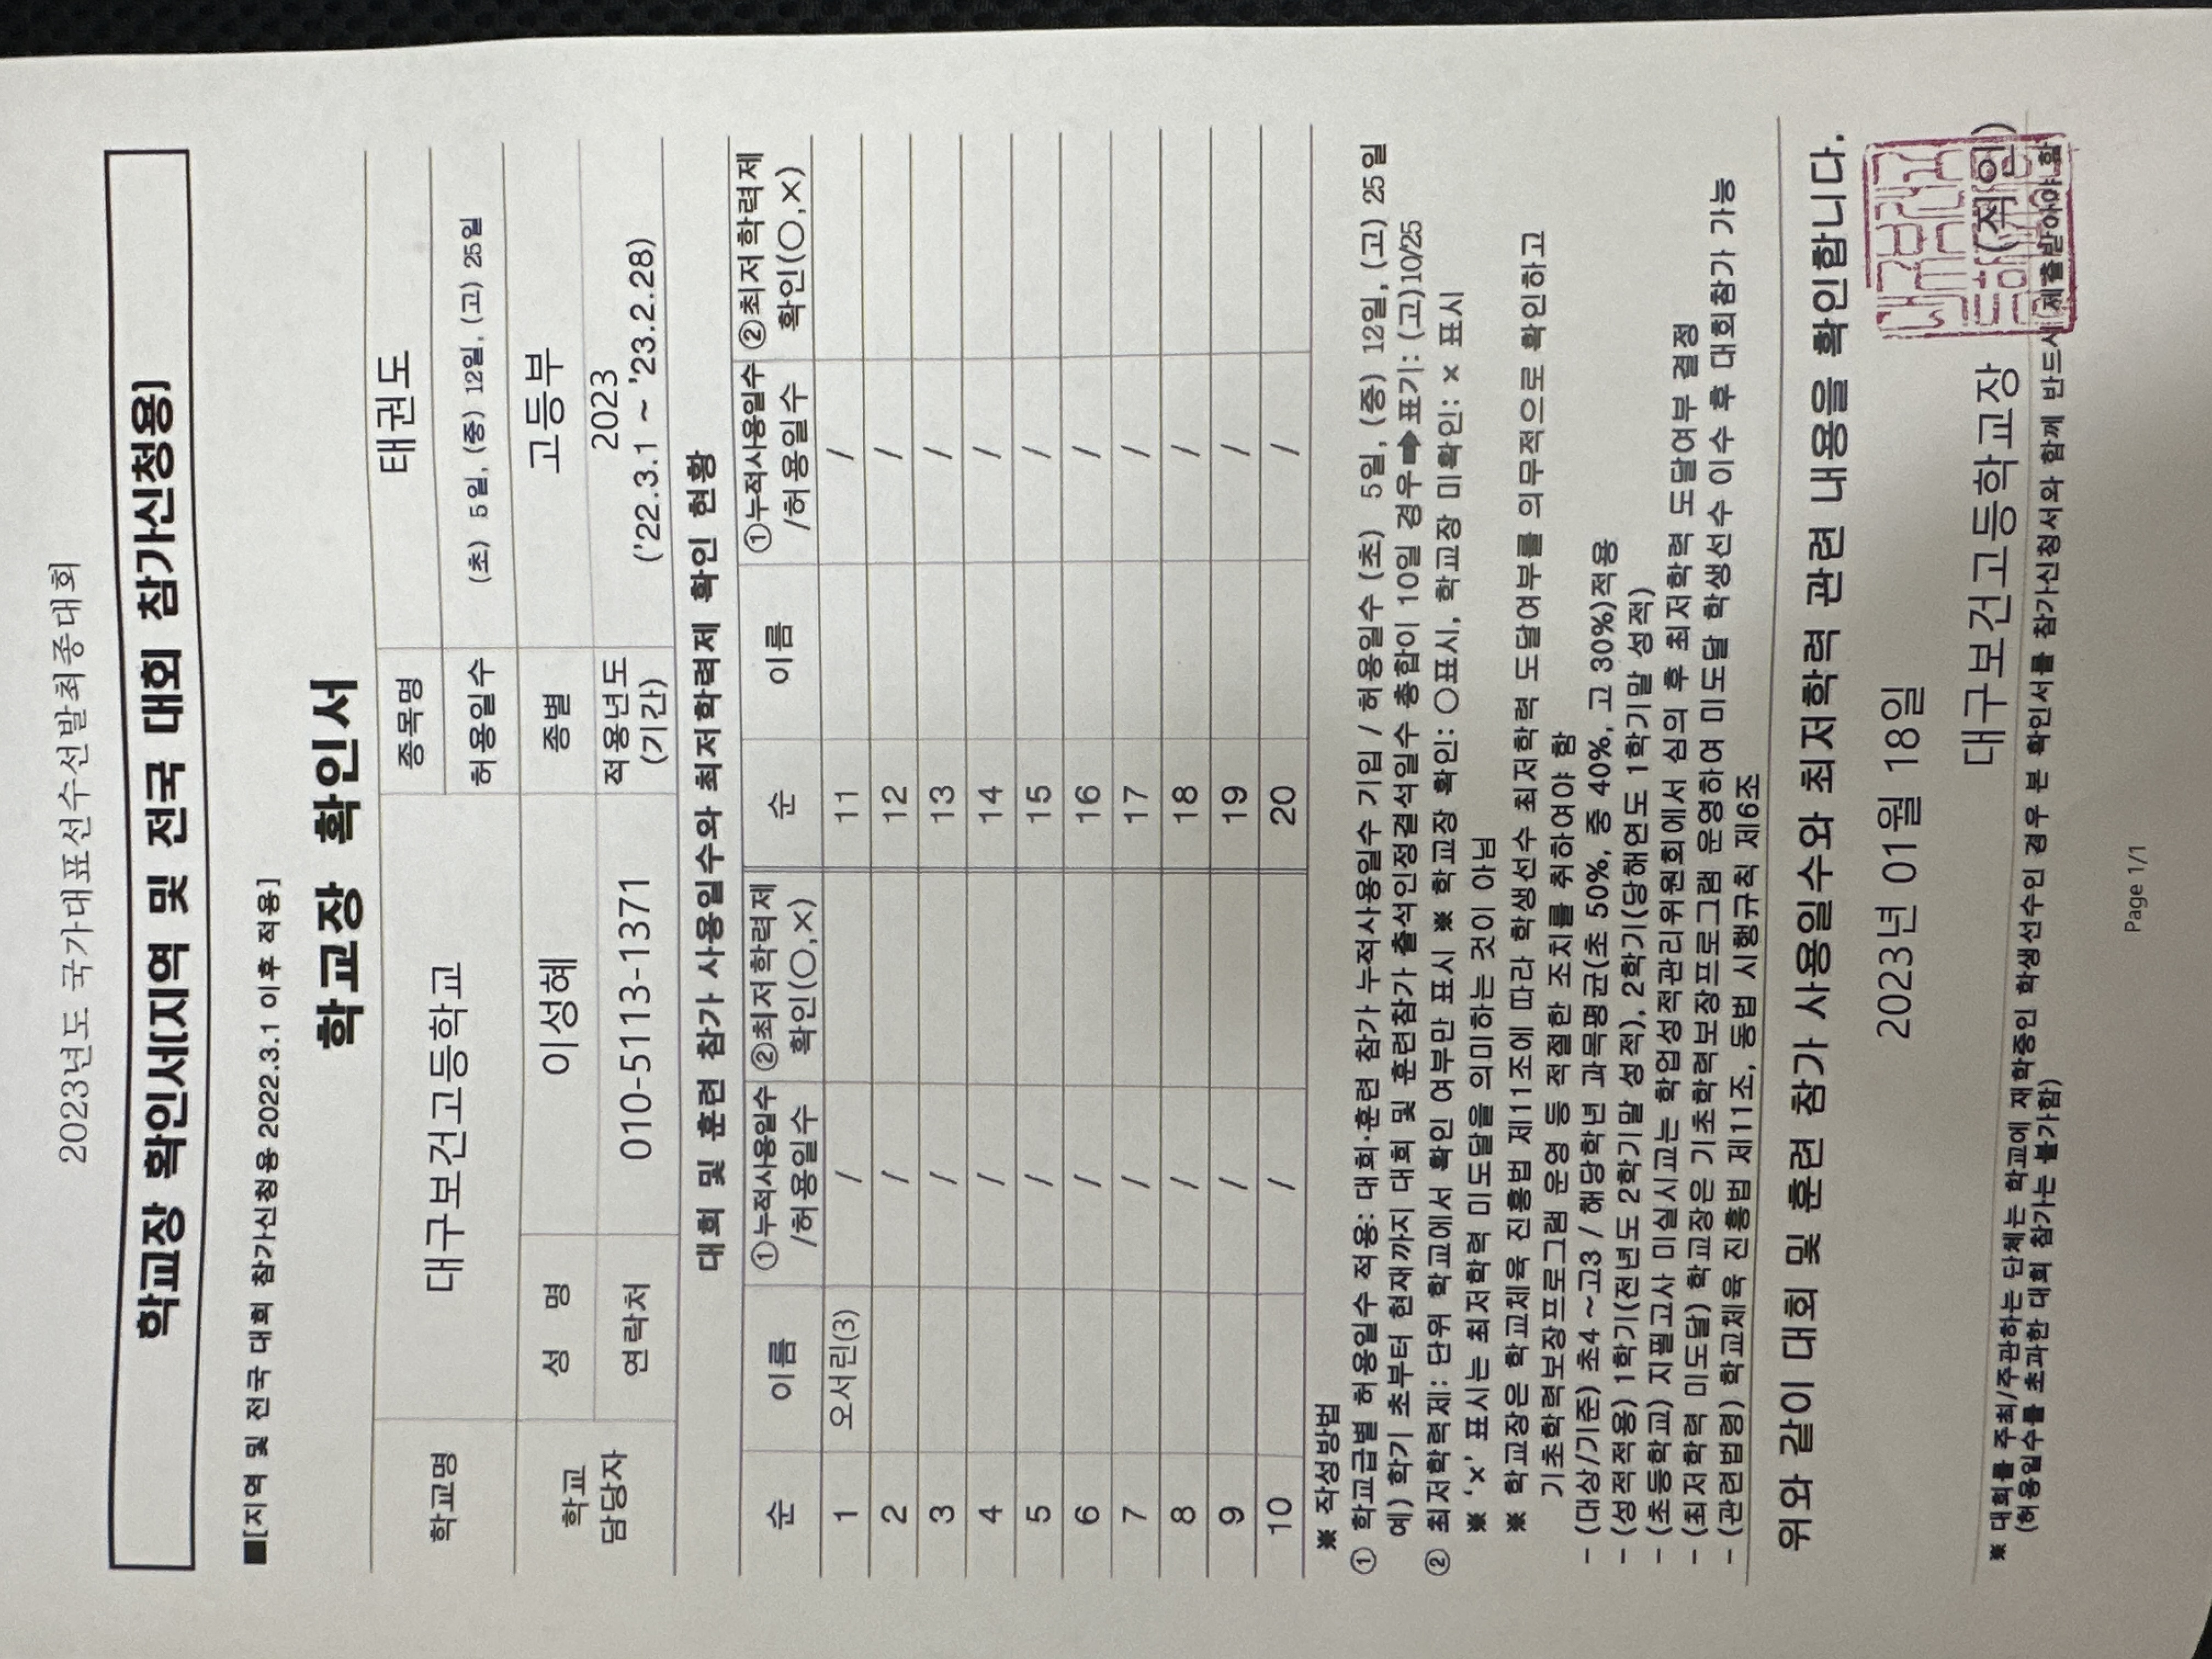 2023년도 국가대표선수선발최종대회
학교장 확인서(지역 및 전국 대회 참가신청용)
■[지역 및 전국 대회 참가신청용 2022.3.1 이후 적용]
학교장 확인서
학교명 대구보건고등학교 종목명 태권도
허용일수 (초) 5일, (중) 12일, (고) 25일
학교 담당자 성 명 이성혜 종별 고등부
연락처 010-5113-1371 적용년도 (기간) 2023 ('22.3.1 ~ '23.2.28)
대회 및 훈련 참가 사용일수와 최저학력제 확인 현황
순 이름 ①누적사용일수 /허용일수 ②최저학력제 확인(○,×) 순 이름 ①누적사용일수 /허용일수 ②최저학력제 확인(○,×)
1 오서린(3) / 11 /
2 / 12 /
3 / 13 /
4 / 14 /
5 / 15 /
6 / 16 /
7 / 17 /
8 / 18 /
9 / 19 /
10 / 20 /
※ 작성방법
① 학교급별 허용일수 적용: 대회·훈련 참가 누적사용일수 기입 / 허용일수 (초) 5일, (중) 12일, (고) 25일
예) 학기 초부터 현재까지 대회 및 훈련참가 출석인정결석일수 총합이 10일 경우➡표기: (고)10/25
② 최저학력제: 단위 학교에서 확인 여부만 표시 ※ 학교장 확인: ○표시, 학교장 미확인: × 표시
※ '×' 표시는 최저학력 미도달을 의미하는 것이 아님
※ 학교장은 학교체육 진흥법 제11조에 따라 학생선수 최저학력 도달여부를 의무적으로 확인하고
기초학력보장프로그램 운영 등 적절한 조치를 취하여야 함
- (대상/기준) 초4 ~고3 / 해당학년 과목평균(초 50%, 중 40%, 고 30%)적용
- (성적적용) 1학기(전년도 2학기말 성적), 2학기(당해연도 1학기말 성적)
- (초등학교) 지필고사 미실시교는 학업성적관리위원회에서 심의 후 최저학력 도달여부 결정
- (최저학력 미도달) 학교장은 기초학력보장프로그램 운영하여 미도달 학생선수 이수 후 대회참가 가능
- (관련법령) 학교체육 진흥법 제11조, 동법 시행규칙 제6조
위와 같이 대회 및 훈련 참가 사용일수와 최저학력 관련 내용을 확인합니다.
2023년 01월 18일
대구보건고등학교장 (직인)
※ 대회를 주최/주관하는 단체는 학교에 재학중인 학생선수인 경우 본 확인서를 참가신청서와 함께 반드시 제출받아야 함
(허용일수를 초과한 대회 참가는 불가함)
Page 1/1